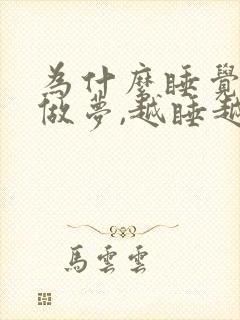 為什麼睡覺
做夢,越睡越
馬雲雲